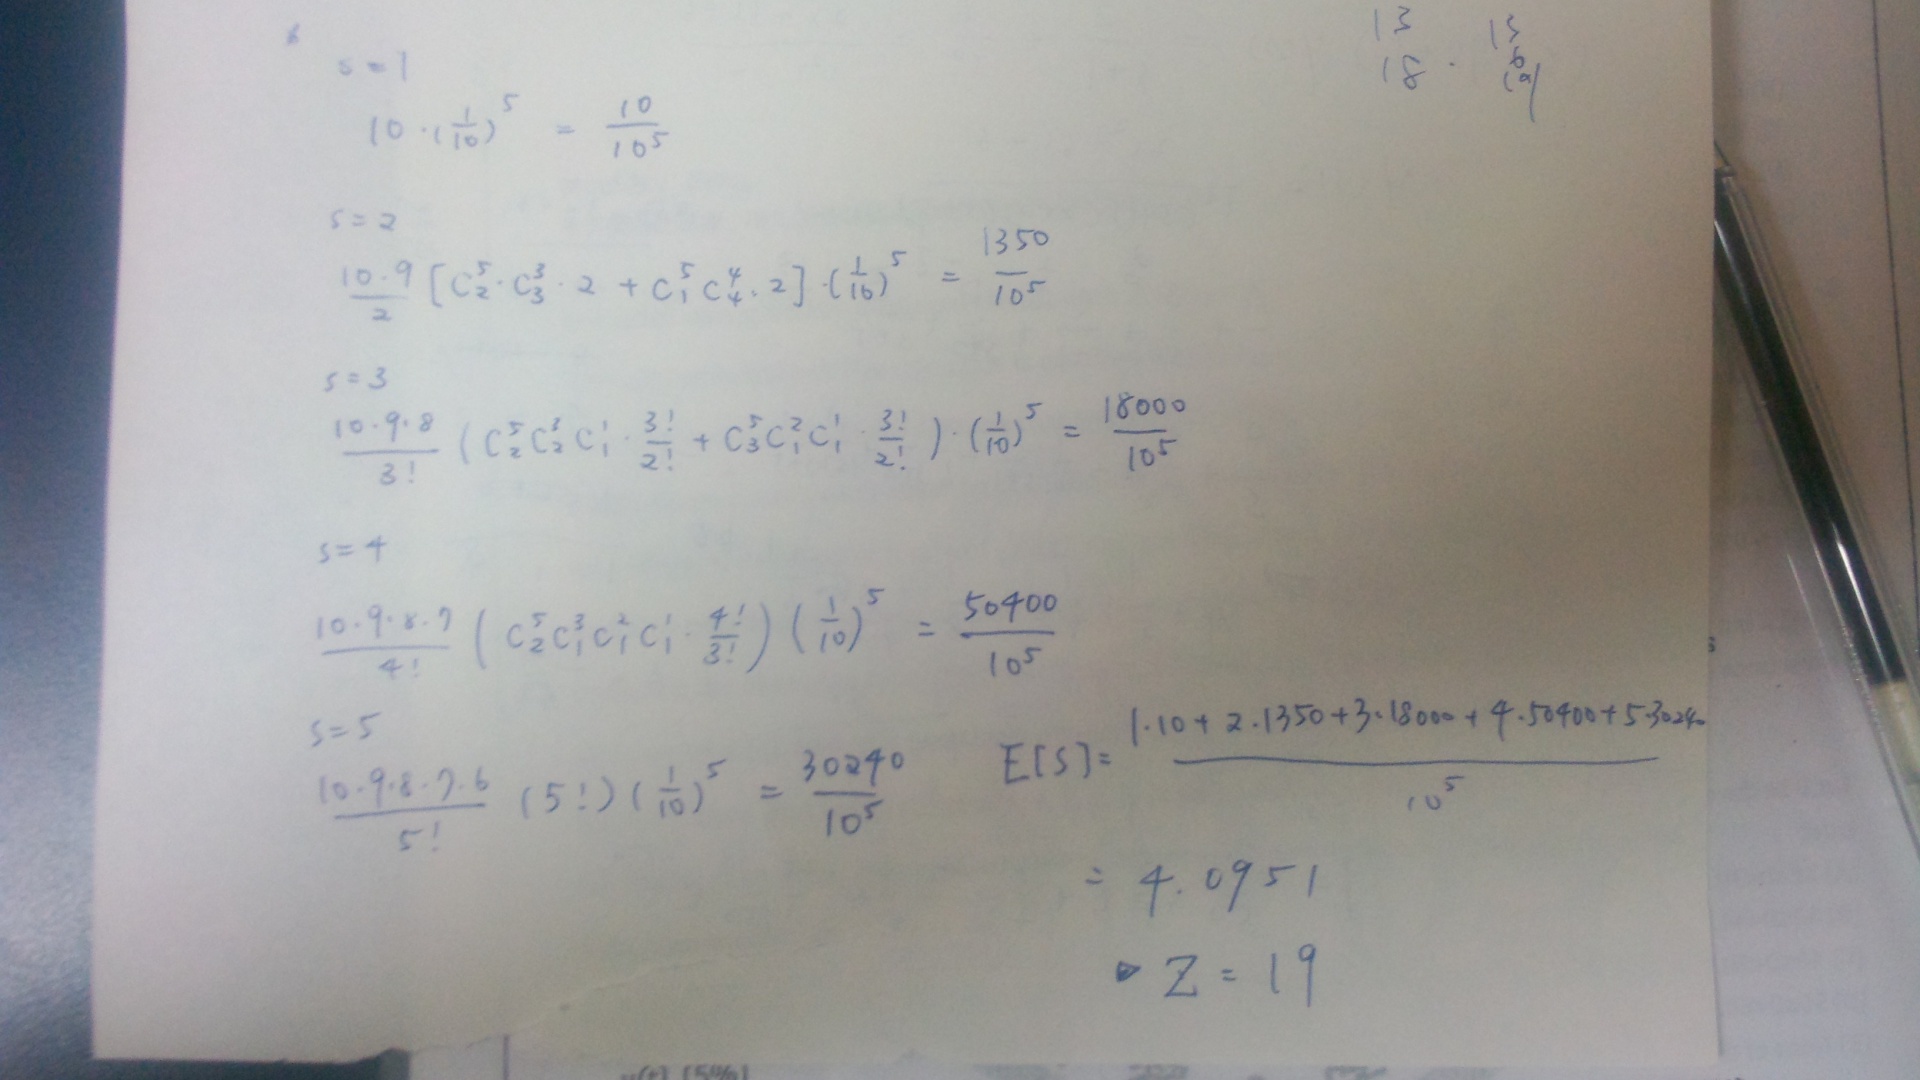 6
s=1
10·(1/10)^5 = 10/10^5
s=2
10·9/2 [C^5_2·C^3_3·2 + C^5_1 C^4_4·2]·(1/10)^5 = 1350/10^5
s=3
10·9·8/3! (C^5_2 C^3_2 C^1_1·3!/2! + C^5_3 C^2_1 C^1_1·3!/2!)·(1/10)^5 = 18000/10^5
s=4
10·9·8·7/4! (C^5_2 C^3_1 C^2_1 C^1_1·4!/3!)(1/10)^5 = 50400/10^5
s=5
10·9·8·7·6/5! (5!)(1/10)^5 = 30240/10^5
E[S]= 1·10+2·1350+3·18000+4·50400+5·30240/10^5
= 4.0951
Z = 19
13
18 ·
15
6
19
[5%]